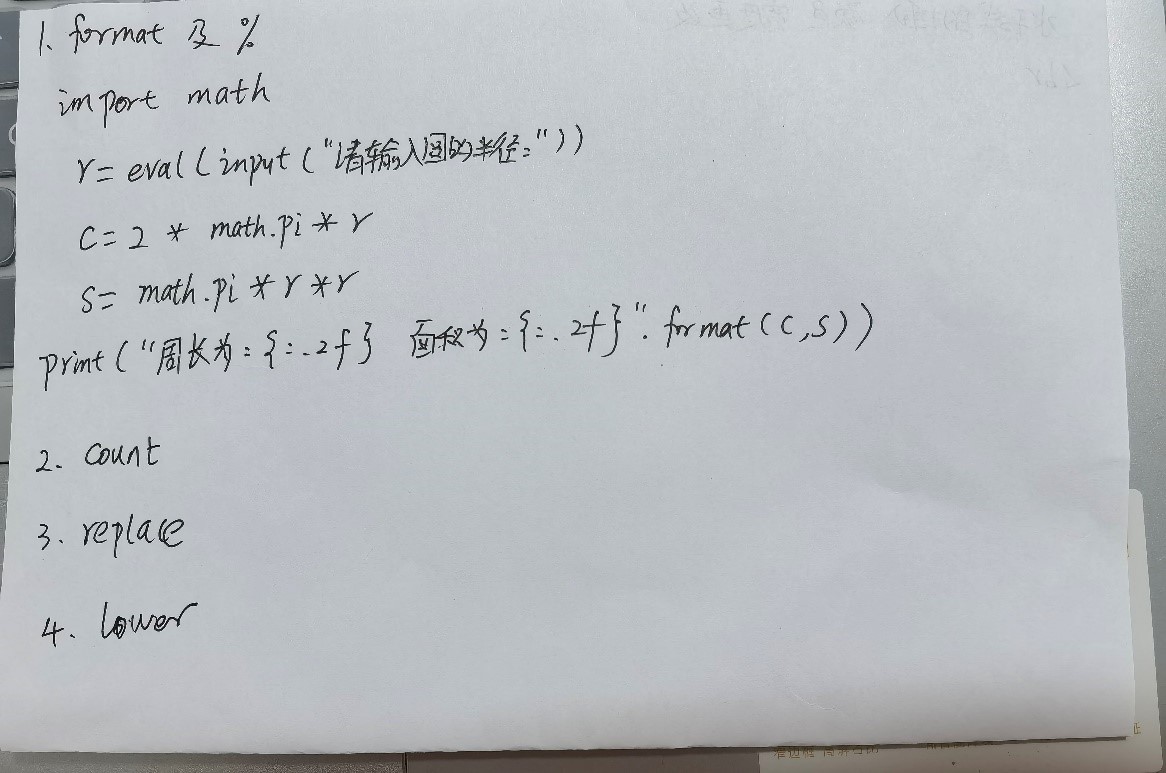 1. format 及 %
import math
r = eval(input("请输入圆的半径:"))
C = 2 * math.pi * r
S = math.pi * r * r
print("周长为:{:.2f} 面积为:{:.2f}".format(C,S))
2. count
3. replace
4. lower